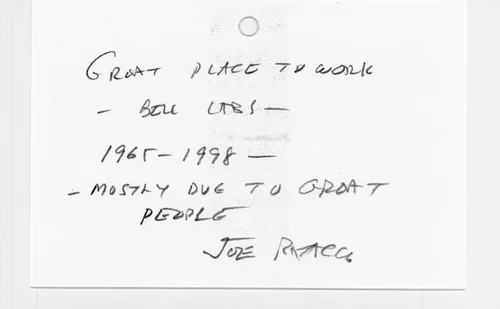 GREAT PLACE TO WORK
- BELL LABS -
1965 - 1998 -
- MOSTLY DUE TO GREAT
PEOPLE
JOE